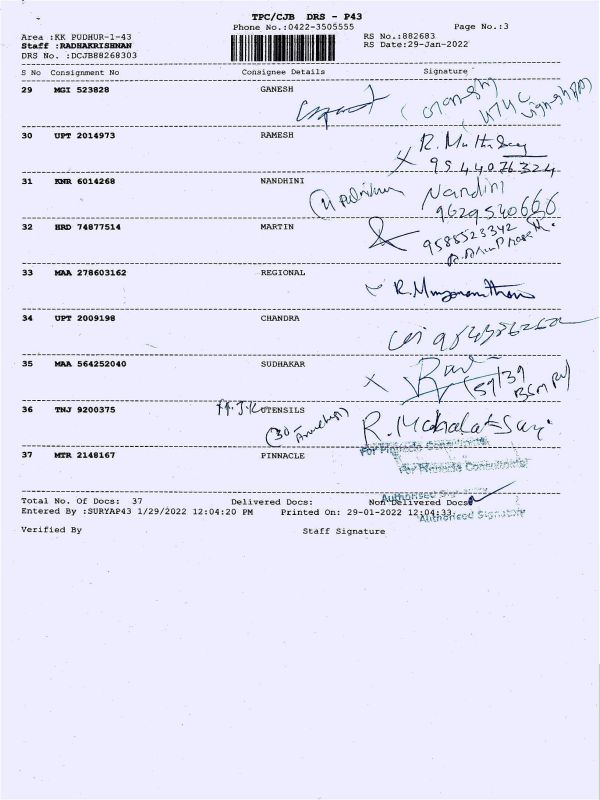 TPC/CJB DRS - P43
Phone No.:0422-3505555 Page No.:3
Area :KK PUDHUR-1-43 RS No.:882683
Staff :RADHAKRISHNAN RS Date:29-Jan-2022
DRS No. :DCJB88268303
S No Consignment No Consignee Details Signature
29 MGI 523828 GANESH
30 UPT 2014973 RAMESH
9544076324
31 KNR 6014268 NANDHINI Nandini
9629540666
32 HRD 74877514 MARTIN 9585523342
33 MAA 278603162 REGIONAL
34 UPT 2009198 CHANDRA
35 MAA 564252040 SUDHAKAR
36 TNJ 9200375 UTENSILS
37 MTR 2148167 PINNACLE For Pinnacle Consultants
For Pinnacle Consultants
Authorised Signatory
Total No. Of Docs: 37 Delivered Docs: Non Delivered Docs:
Entered By :SURYAP43 1/29/2022 12:04:20 PM Printed On: 29-01-2022 12:04:33
Authorised Signatory
Verified By Staff Signature